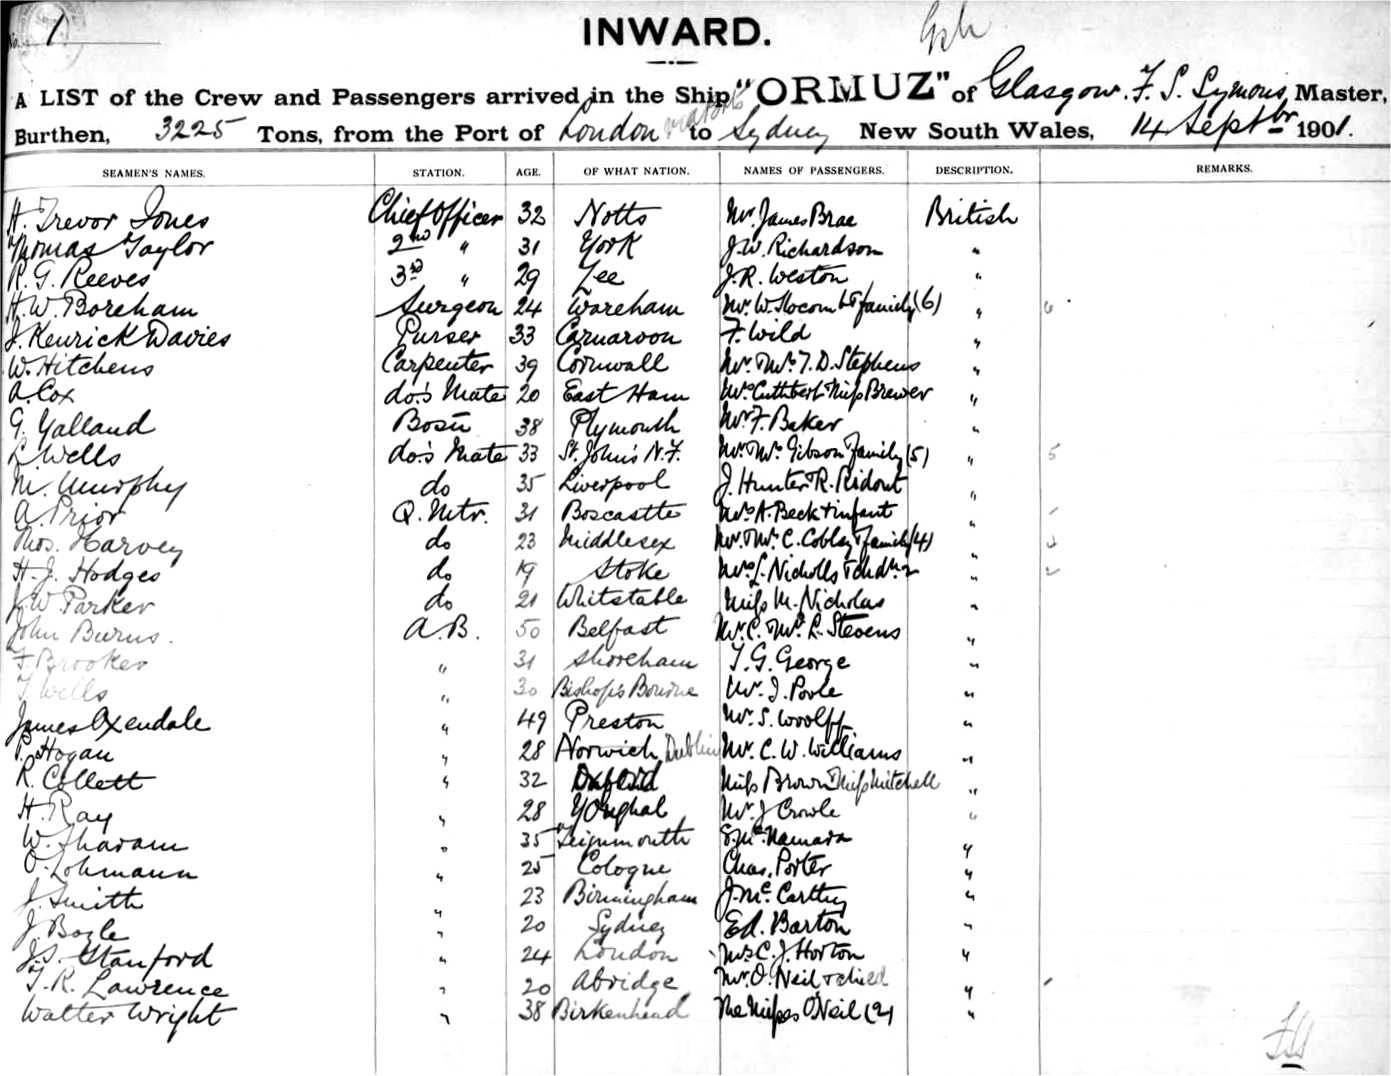 No. 1
INWARD.
A LIST of the Crew and Passengers arrived in the Ship "ORMUZ" of Glasgow. F. S. Symons Master,
Burthen, 3225 Tons, from the Port of London to Sydney New South Wales, 14 Septbr 1901.
SEAMEN'S NAMES. STATION. AGE. OF WHAT NATION. NAMES OF PASSENGERS. DESCRIPTION. REMARKS.
H. Trevor Jones Chief Officer 32 Notts Mr. James Brae British
Thomas Taylor 2nd " 31 York J. W. Richardson "
R. G. Reeves 3rd " 29 Lee J. R. Weston "
H. W. Boreham Surgeon 24 Wareham Mr. W. Slocomb & family (6) " 6
J. Kenrick Davies Purser 33 Carnarvon F. Wild "
W. Hitchens Carpenter 39 Cornwall Mr. & Mrs. T. D. Stephens "
A. Cox do's Mate 20 East Ham Mrs Cuthbert & Miss Brewer "
G. Yalland Bosn 38 Plymouth Mr. F. Baker "
L. Wells do's Mate 33 St. John's N.F. Mr. & Mrs. Gibson & family (5) " 5
M. Murphy do 35 Liverpool J. Hunter & R. Ridout "
A. Prior Q. Mtr. 31 Boscastle Mrs A. Beck & infant "
Thos. Harvey do 23 Middlesex Mr. & Mrs. C. Cobley & family (4) " 4
H. J. Hodges do 19 Stoke Mrs L. Nicholls & chdn 2 " 2
J. W. Parker do 21 Whitstable Miss M. Nicholas "
John Burns. A.B. 50 Belfast Mr. C. & Mrs. L. Stevens "
F. Brooker " 31 Shoreham T. G. George "
T. Wells " 30 Bishop's Bourne Mr. J. Poole "
James Oxendale " 49 Preston Mr. S. Woolff "
P. Hogan " 28 Norwich Dublin Mr. C. W. Williams "
R. Collett " 32 Miss Brown & Miss Mitchell "
H. Ray " 28 Youghal Mr. J Crowle "
W. Sharam " 35 Teignmouth S. McNamara "
O. Lohmann " 25 Cologne Chas. Porter "
J. Smith " 23 Birmingham J. McCarthy "
J. Boyle " 20 Sydney Ed. Barton "
J. S. Stanford " 24 London Mrs C. J. Horton "
T. R. Lawrence " 20 Abridge Mr. O'Neil & child "
Walter Wright " 38 Birkenhead The Misses O'Neil (2) "